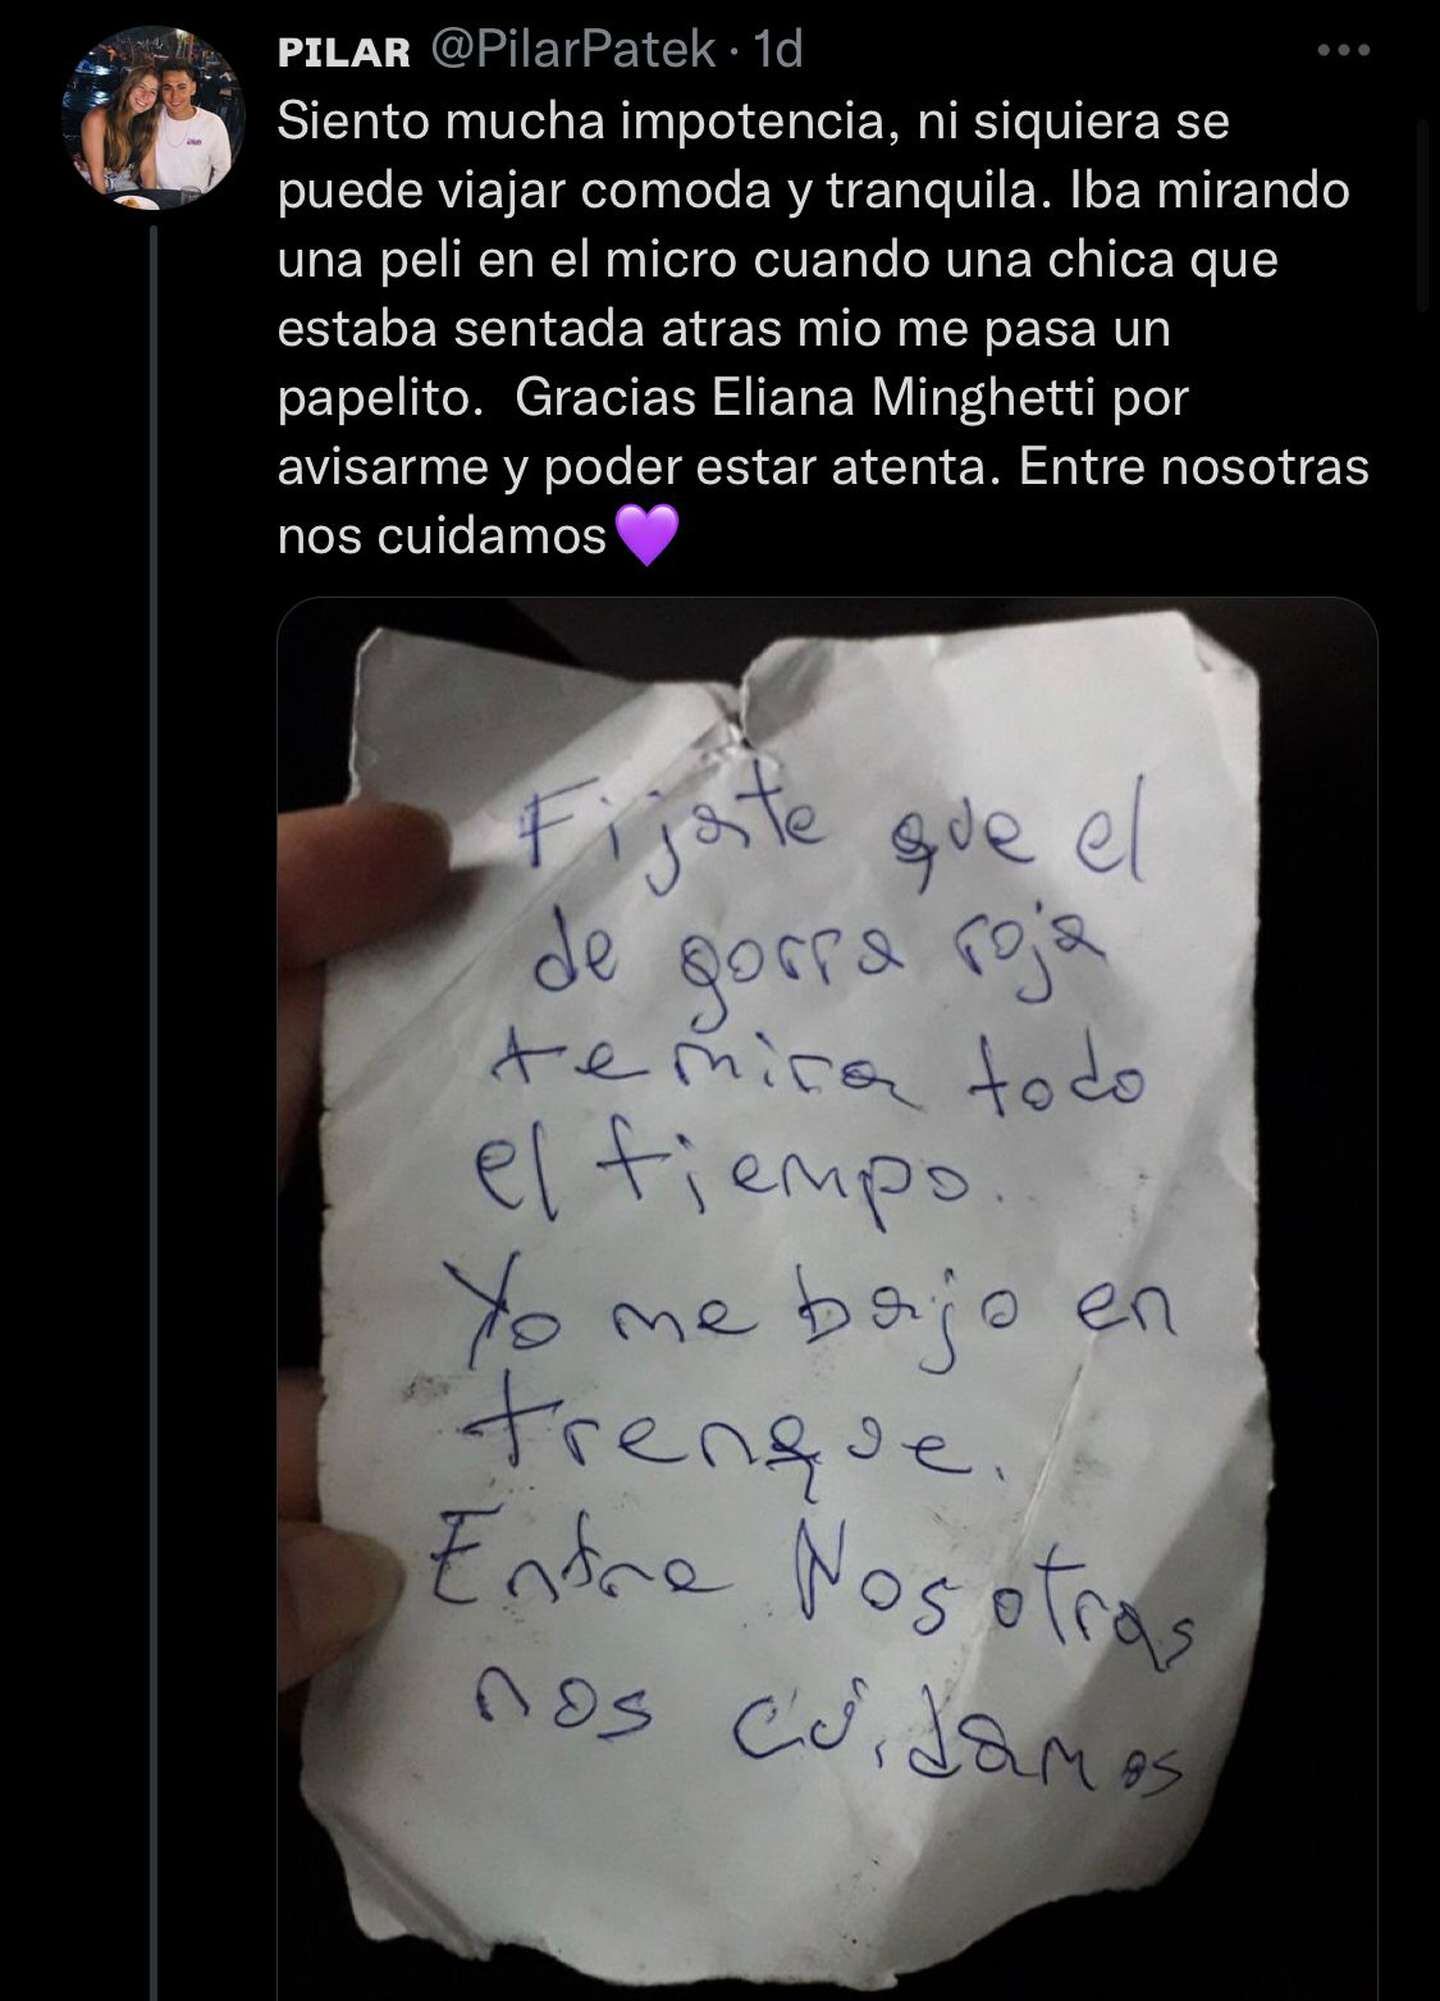 PILAR @PilarPatek · 1d
Siento mucha impotencia, ni siquiera se
puede viajar comoda y tranquila. Iba mirando
una peli en el micro cuando una chica que
estaba sentada atras mio me pasa un
papelito.  Gracias Eliana Minghetti por
avisarme y poder estar atenta. Entre nosotras
nos cuidamos💜
Fijate que el
de gorra roja
te mira todo
el tiempo.
Yo me bajo en
trenque.
Entre Nosotras
nos cuidamos